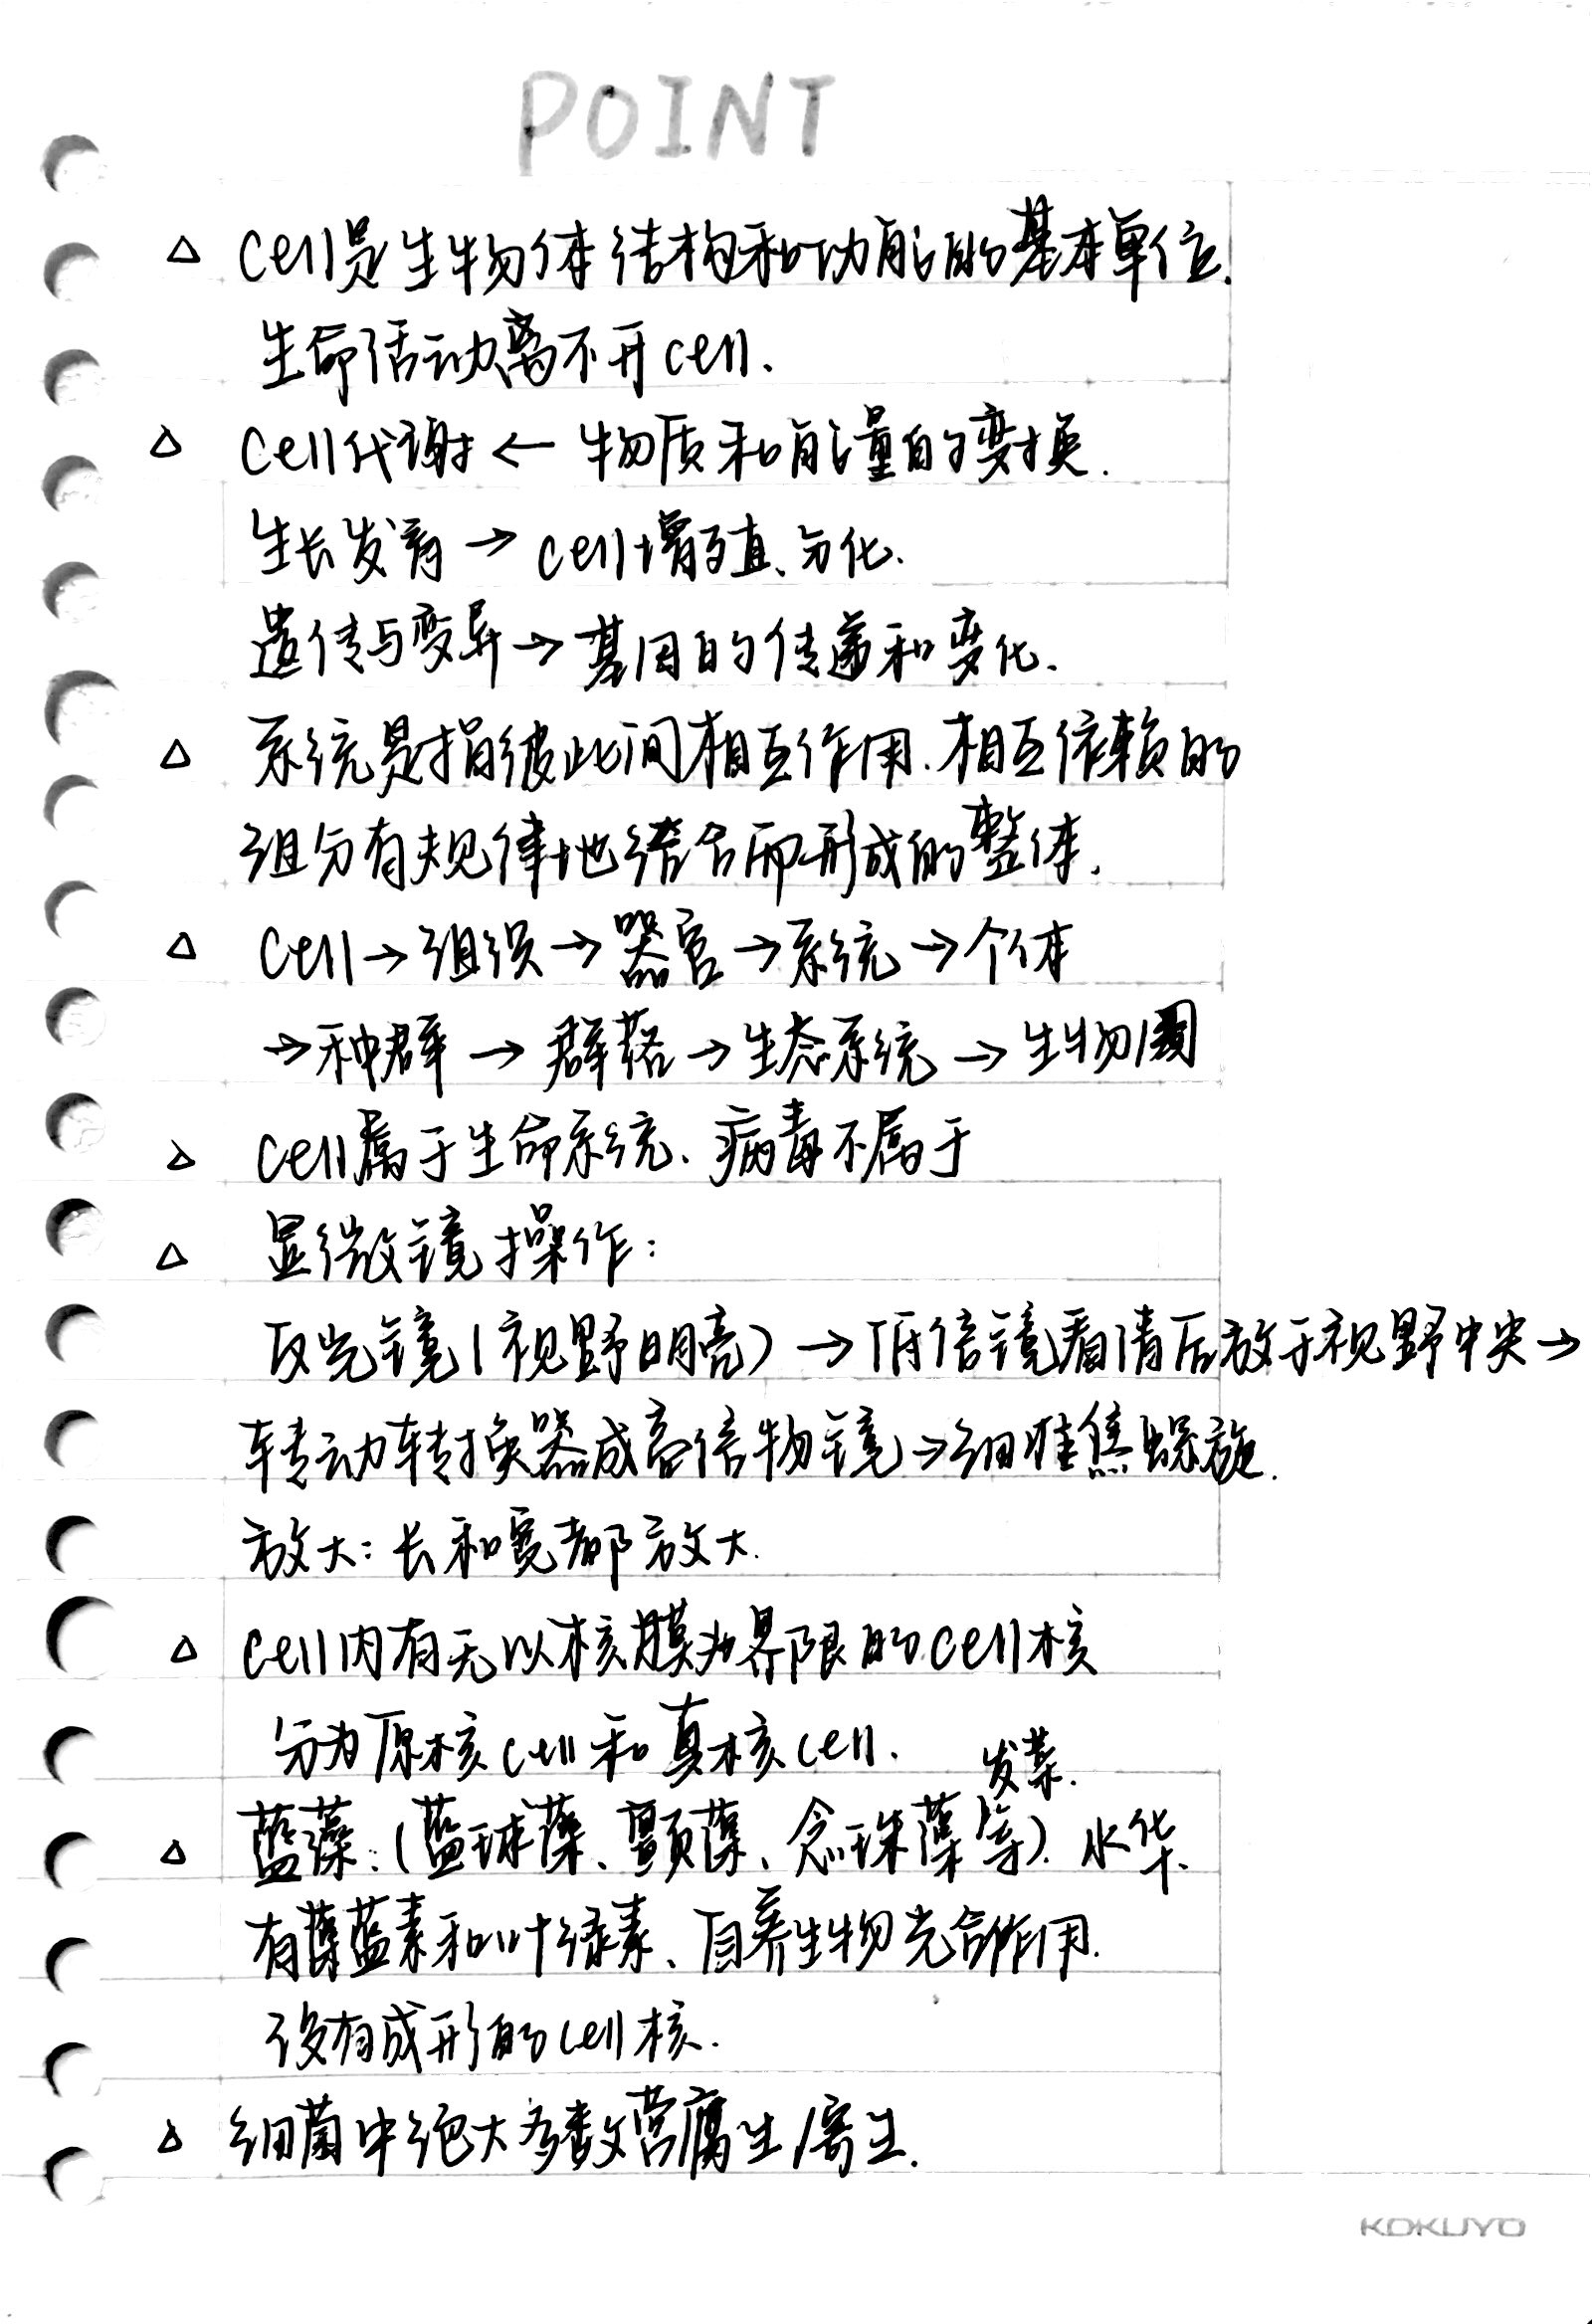 POINT
△ cell是生物体结构和功能的基本单位.
生命活动离不开cell.
△ cell代谢 ← 物质和能量的变换.
生长发育 → cell增殖、分化.
遗传与变异 → 基因的传递和变化.
△ 系统是指彼此间相互作用、相互依赖的
组分有规律地结合而形成的整体.
△ cell → 组织 → 器官 → 系统 → 个体
→ 种群 → 群落 → 生态系统 → 生物圈
△ cell属于生命系统、病毒不属于
△ 显微镜操作:
反光镜(视野明亮) → 低倍镜看清后放于视野中央 →
转动转换器成高倍物镜 → 细准焦螺旋.
放大: 长和宽都放大.
△ cell内有无以核膜为界限的cell核
分为原核cell和真核cell.
发菜.
△ 蓝藻:(蓝球藻、颤藻、念珠藻等). 水华.
有藻蓝素和叶绿素、自养生物光合作用.
没有成形的cell核.
△ 细菌中绝大多数营腐生/寄生.
KOKUYO